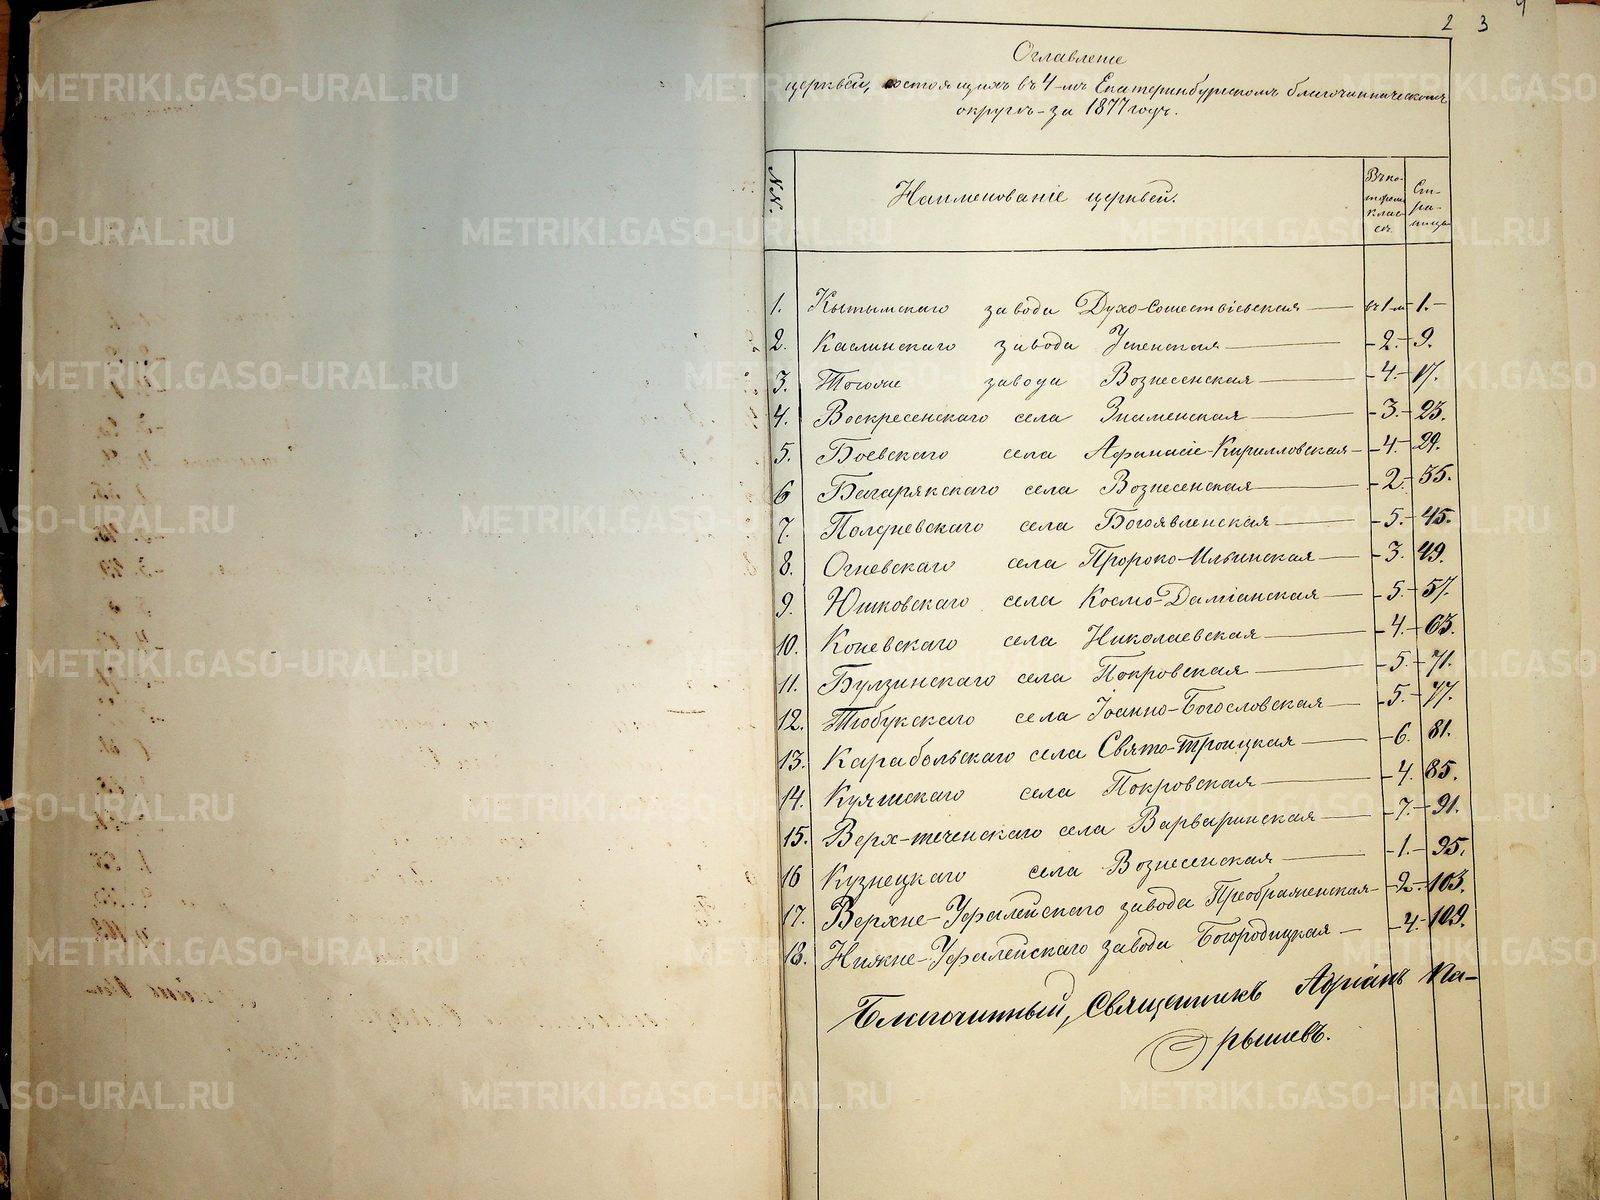 2 3 4
Оглавленіе
церквей, состоящихъ въ 4-мъ Екатеринбургскомъ благочинническомъ
округѣ - за 1877 годъ.
№№. Наименованіе церквей. Въ ко-торомъ клас-сѣ. Стра-ницы
1. Кытымскаго завода Духо-Сошествіевская — въ 1-м 1.
2. Каслинскаго завода Успенская — 2. — 9.
3. Тогоже завода Вознесенская — 4. — 17.
4. Воскресенскаго села Знаменская — 3. — 23.
5. Боевскаго села Афанасіе-Кирилловская — 4. — 29.
6 Багарякскаго села Вознесенская — 2. — 35.
7. Полдневскаго села Богоявленская — 5. — 45.
8. Огневскаго села Пророко-Ильинская — 3. 49.
9. Юшковскаго села Космо-Даміанская — 5. — 57.
10. Коневскаго села Николаевская — 4. — 63.
11. Булзинскаго села Покровская — 5. — 71.
12. Тюбукскаго села Іоанно-Богословская — 5. — 77.
13. Карабольскаго села Свято-Троицкая — 6. 81.
14. Куяшскаго села Покровская — 4. 85.
15. Верх-теченскаго села Варваринская — 7. — 91.
16 Кузнецкаго села Вознесенская — 1. — 95.
17. Верхне-Уфалейскаго завода Преображенская — 2. — 103.
18. Нижне-Уфалейскаго завода Богородицкая — 4. — 109.
Благочинный, Священникъ Адріанъ Па-
рышевъ.
METRIKI.GASO-URAL.RU